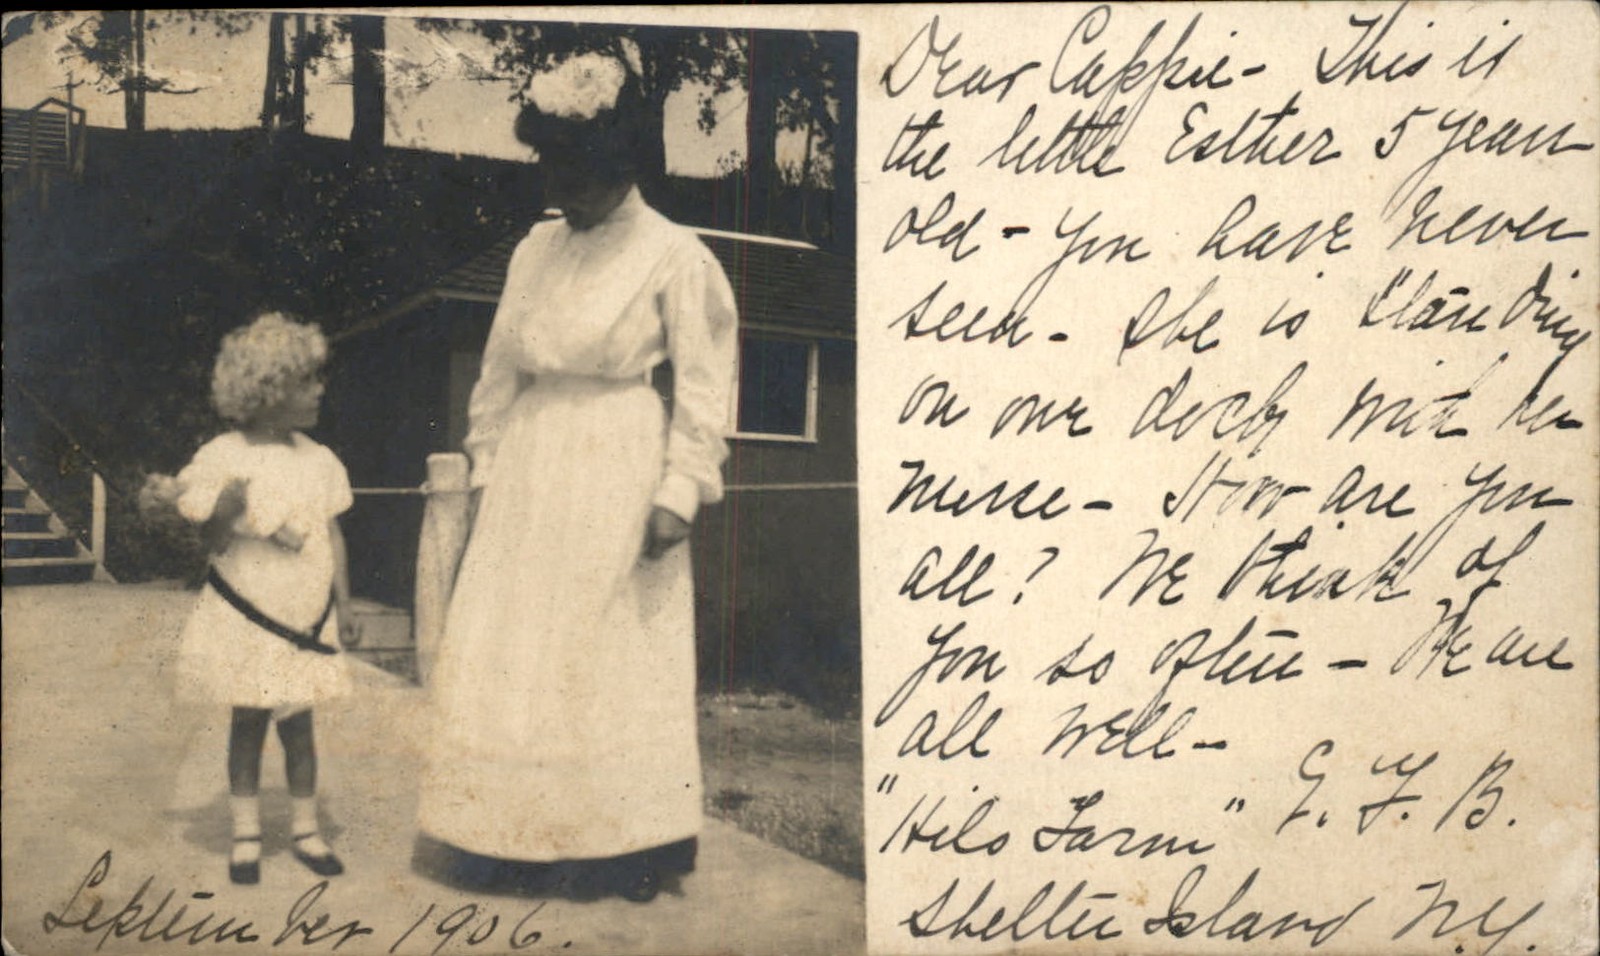 Dear Cappie - This is
the little Esther 5 years
old - you have never
seen - She is standing
on our dock with her
nurse - How are you
all? We think of
you so often - We are
all well -
E. F. B.
"Hilo Farm"
Shelter Island N.Y.
September 1906.